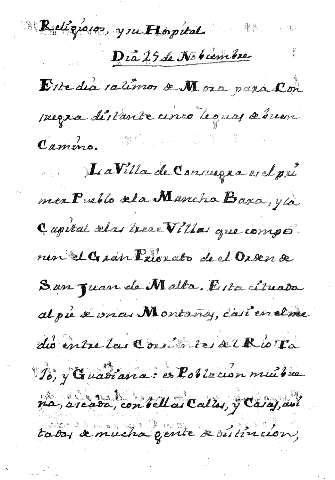 Religiosos, y su Hospital
Dia 25 de Nobiembre
Este dia salimos de Mora para Con
suegra distante cinco leguas de buen
Camino.
La Villa de Consuegra es el pri
mer Pueblo de la Mancha Baxa, y la
Capital de las trece Villas que compo
nen el Gran Priorato de el Orden de
San Juan de Malta. Esta situada
al pie de unas Montañas, casi en el me
dio entre las Corrientes del Rio Ta
jo, y Guadiana: es Poblacion mui bue
na, aseada, con bellas Calles, y Casas, avi
tadas de mucha gente de distincion,